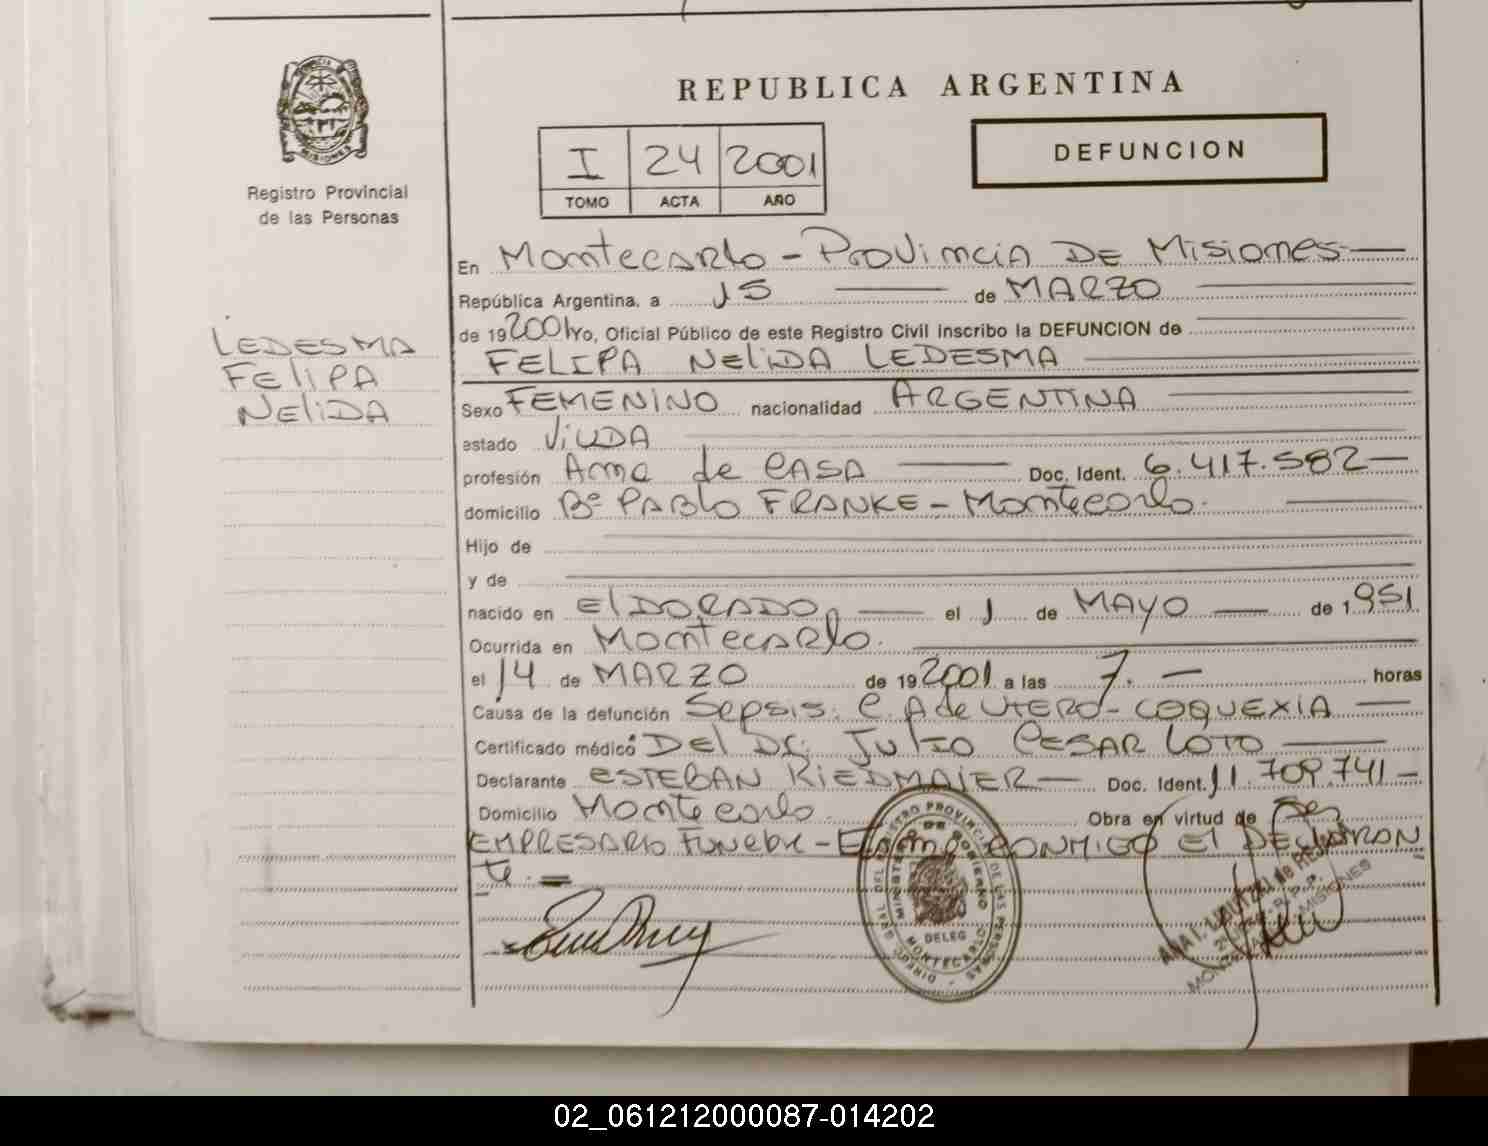 REPUBLICA ARGENTINA
PROVINCIA
MISIONES
Registro Provincial
de las Personas
I 24 2001
TOMO ACTA AÑO
DEFUNCION
LEDESMA
FELIPA
NELIDA
En Montecarlo - Provincia DE Misiones
República Argentina, a 15 de MARZO
de 192001 Yo, Oficial Público de este Registro Civil Inscribo la DEFUNCION de
FELIPA NELIDA LEDESMA
Sexo FEMENINO nacionalidad ARGENTINA
estado VIUDA
profesión Ama de CASA Doc. Ident. 6.417.582
domicilio Bº PABLO FRANKE - Montecarlo.
Hijo de
y de
nacido en ElDORADO el 1 de MAYO de 1951
Ocurrida en Montecarlo.
el 14 de MARZO de 192001 a las 7. horas
Causa de la defunción Sepsis. C. A de UTERO - COQUEXIA
Certificado médico DEl DR. JULIO CESAR LOTO
Declarante ESTEBAN RIEDMAIER Doc. Ident. 11.709.741
Domicilio Montecarlo. Obra en virtud de Ser
EMPRESARIO FUNEBRE - Firma CONMIGO El DEclARAN
te. =
DIREC. GRAL. DEL REGISTRO PROVINCIAL DE LAS PERSONAS
MINISTERIO DE GOBIERNO
DELEG.
MONTECARLO
MISIONES